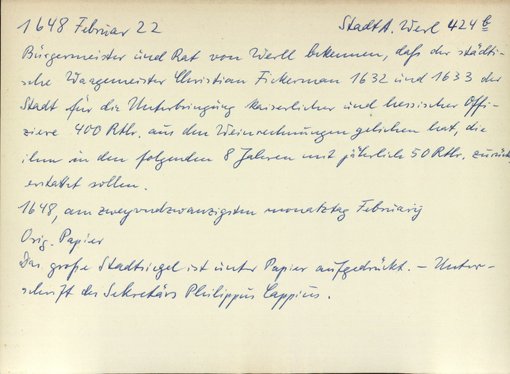 1648 Februar 22 StadtA. Werl 424 b
Bürgermeister und Rat von Werll bekennen, daß der städti-
sche Waagemeister Christian Fickerman 1632 und 1633 der
Stadt für die Unterbringung kaiserlicher und hessischer Offi-
ziere 400 Rtlr. aus den Weinrechnungen geliehen hat, die
ihm in den folgenden 8 Jahren mit jährlich 50 Rtlr. zurück
erstattet sollen.
1648, am zweyundzwanzigsten monatztag Februarij
Orig. Papier
Das große Stadtsiegel ist unter Papier aufgedrückt. – Unter-
schrift des Sekretärs Philippus Cappius.